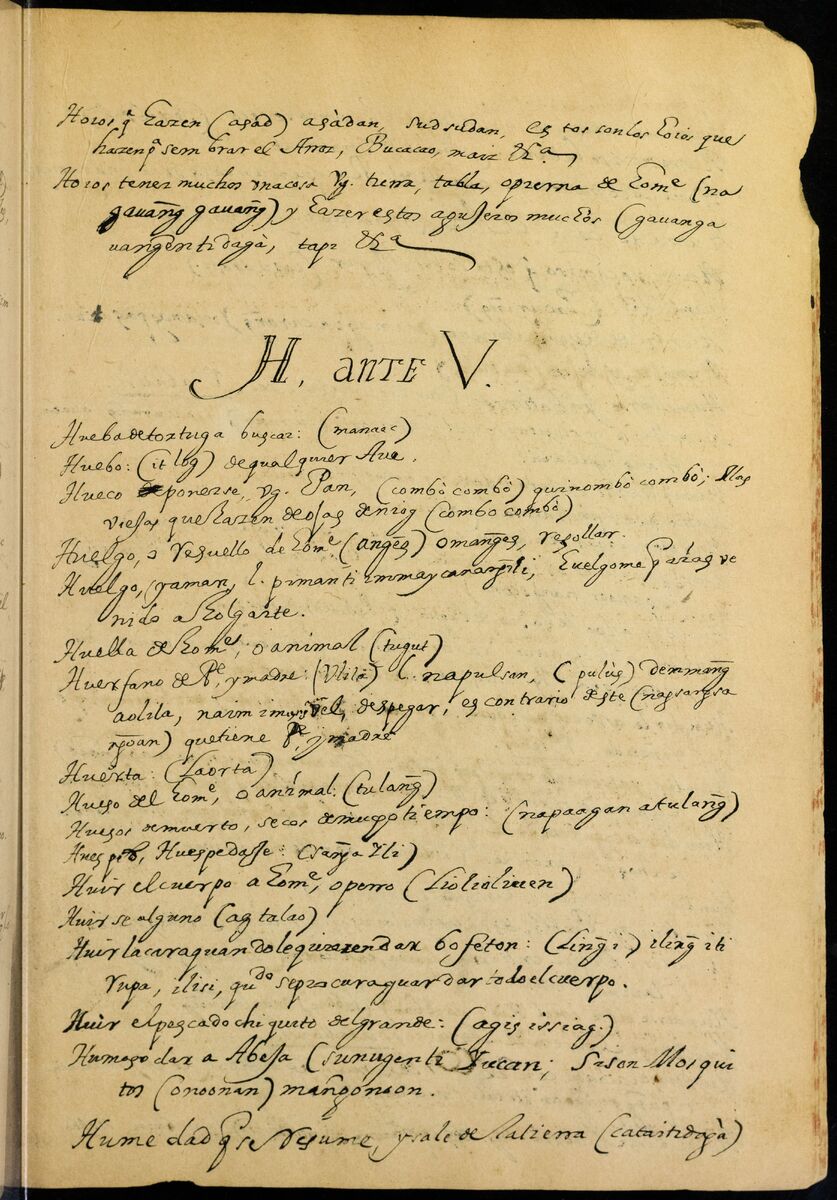 Hoios q̃ hazen (asad) asàdan, sudsudan, es tos son los hoios que
hazen pª sembrar el Arroz, Bucacao, maiz &cª
Hoios tener muchos vna cosa Vg. tierra, tabla, o pierna de homᵉ (na
gauang̃ gauang̃) y hazer estos agujeros muchos (gauanga
uangenti daga, tapi &cª
H, ante V.
Hueba de tortuga buscar: (manaac)
Huebo: (it log) de qualquier Aue.
Hueco deponerse, vg. Pan, (combò combò) quinombò combò; llas
viejas que hazen de ojas de niog (combo combò)
Huelgo, o resuello de homᵉ (ang̃es) o mang̃es, resollar.
Huelgo, (yaman, l. pimanti immaycanarsiti; huelgome
nido a holgarte.
Huella de homᵉ, o animal (tugut)
Huerfano de Pᵉ, y madre: (Vlila) l. napulsan, (pulùs)
aolila, despegar, es contrario deste
que tiene Pᵉ, y madre
Huerta: (Laorta)
Hueso del homᵉ, o animal: (tulang̃)
Huesos de muerto, secos de mucho tiempo: (napaagan a tulang̃)
Huesped, Huespedasse:
Huir el cuerpo a homᵉ, o perro (Liolioliuen)
Huir se alguno (ag talao)
Huir la cara quando le quieren dar bofeton: (Ling̃i) iling̃iti
rupa, ilisi, qudo se procura guardar todo el cuerpo.
Huir el pescado chiquito del grande: (agis issiag.)
Humaso dar a Abeja (sunugenti Yucan; Si son Mosqui
tos (onoonan) mang̃onoon.
Humedad q̃ se resume, y sale de la tierra